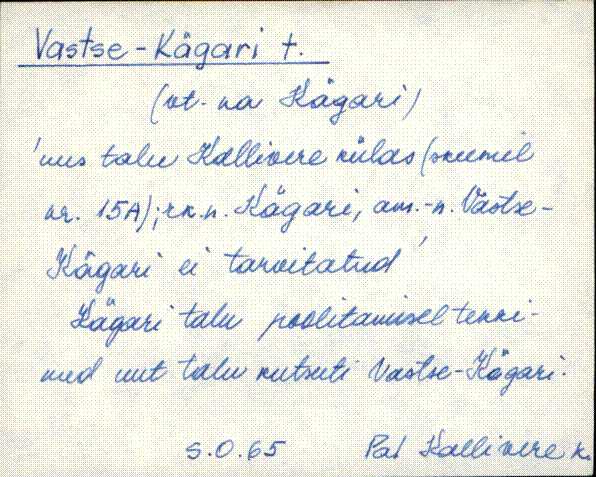 Vastse-Kägari t.
(vt. ka Kägari)
'uus talu Kallivere külas (skeemil
nr. 15A); rk.n. Kägari, am.-n. Vastse-
Kägari ei tarvitatud'
Kägari talu poolitamisel tekki-
nud uut talu kutsuti Vastse-Kägari.
S.O.65 Pal Kallivere k.